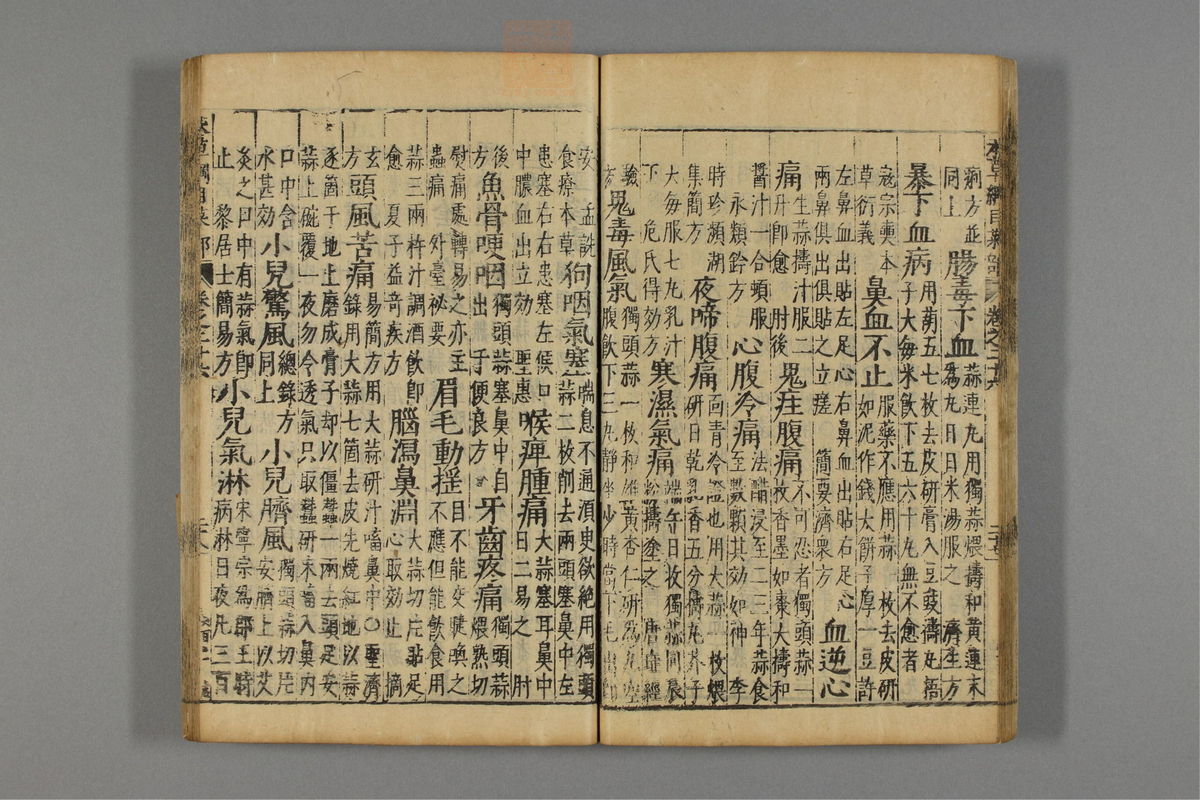 本草綱目菜部 卷之二十六 二十七
劑方並同上 腸毒下血 蒜連丸用獨蒜煨擣和黃連末為丸日日米湯服之 濟生方
暴下血病 用葫五七枚去皮研膏入豆豉擣丸梧子大每米飲下五六十丸無不愈者
寇宗奭本草衍義 鼻血不止 服藥不應用蒜一枚去皮研如泥作錢大餅子厚一豆許
左鼻血出貼左足心右鼻血出貼右足心兩鼻俱出俱貼之立瘥 簡要濟衆方 血逆心
痛 生蒜擣汁服二升即愈 肘後 鬼疰腹痛 不可忍者獨頭蒜一枚香墨如棗大擣和
醬汁一合頓服 永類鈐方 心腹冷痛 法醋浸至二三年蒜食至數顆其効如神 李
時珍瀕湖集簡方 夜啼腹痛 面青冷證也用大蒜一枚煨研日乾乳香五分擣丸芥子
大每服七丸乳汁下 危氏得効方 寒濕氣痛 端午日收獨蒜同辰粉擣塗之 唐瑤經
驗方 鬼毒風氣 獨頭蒜一枚和雄黃杏仁研為丸空腹飲下三丸靜坐少時當下毛出即
安 孟詵食療本草 狗咽氣塞 喘息不通須臾欲絕用獨頭蒜二枚削去兩頭塞鼻中左
患塞右右患塞左候口中膿血出立効 聖惠 喉痺腫痛 大蒜塞耳鼻中日二易之 肘
後方 魚骨哽咽 獨頭蒜塞鼻中自出 十便良方 牙齒疼痛 獨頭蒜煨熟切
熨痛處轉易之亦主蟲痛 外臺祕要 眉毛動搖 目不能交睫喚之不應但能飲食用
蒜三兩杵汁調酒飲即愈 夏子益奇疾方 腦瀉鼻淵 大蒜切片貼足心取効止 摘
玄方 頭風苦痛 易簡方用大蒜研汁㗜鼻中○聖濟錄用大蒜七箇去皮先燒紅地以蒜
逐箇于地上磨成膏子却以僵蠶一兩去頭足安蒜上碗覆一夜勿令透氣只取蠶研末㗜入鼻內
口中含水甚効 小兒驚風 總錄方同上 小兒臍風 獨頭蒜切片安臍上以艾
灸之口中有蒜氣即止 黎居士簡易方 小兒氣淋 宋寧宗為郡王時病淋日夜凡三百
本草綱目菜部 卷之二十六 二十八